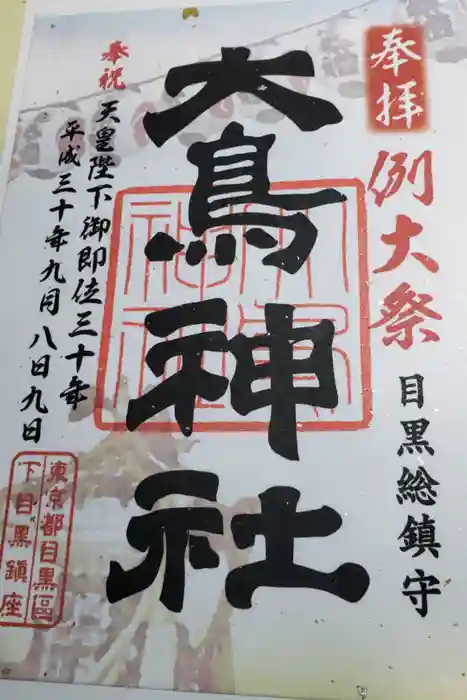 奉拝
例大祭
目黒総鎮守
大鳥神社
奉祝
天皇陛下御即位三十年
平成三十年九月八日九日
東京都目黒區
下目黑鎭座